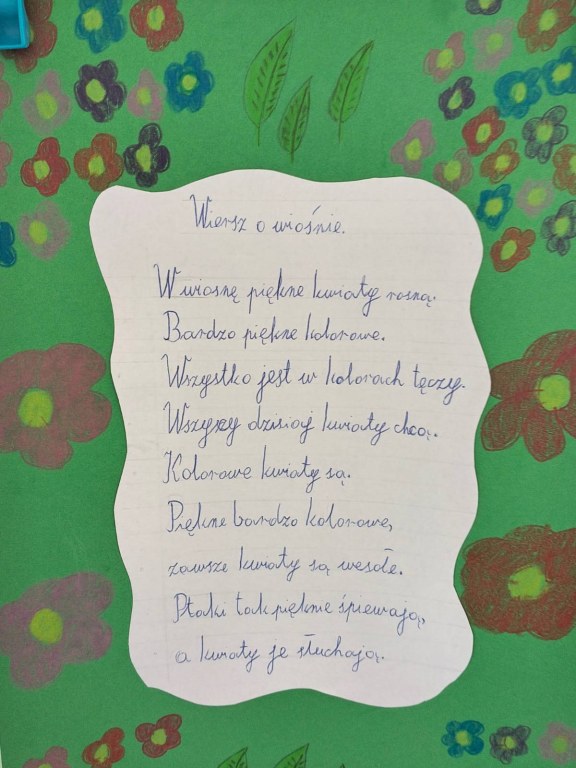 Wiersz o wiośnie.
W wiosnę piękne kwiaty rosną.
Bardzo piękne kolorowe.
Wszystko jest w kolorach tęczy.
Wszyszy dzisiaj kwiaty chcą.
Kolorowe kwiaty są.
Piękne bardzo kolorowe,
zawsze kwiaty są wesołe.
Ptaki tak pięknie śpiewają,
a kwiaty je słuchają.